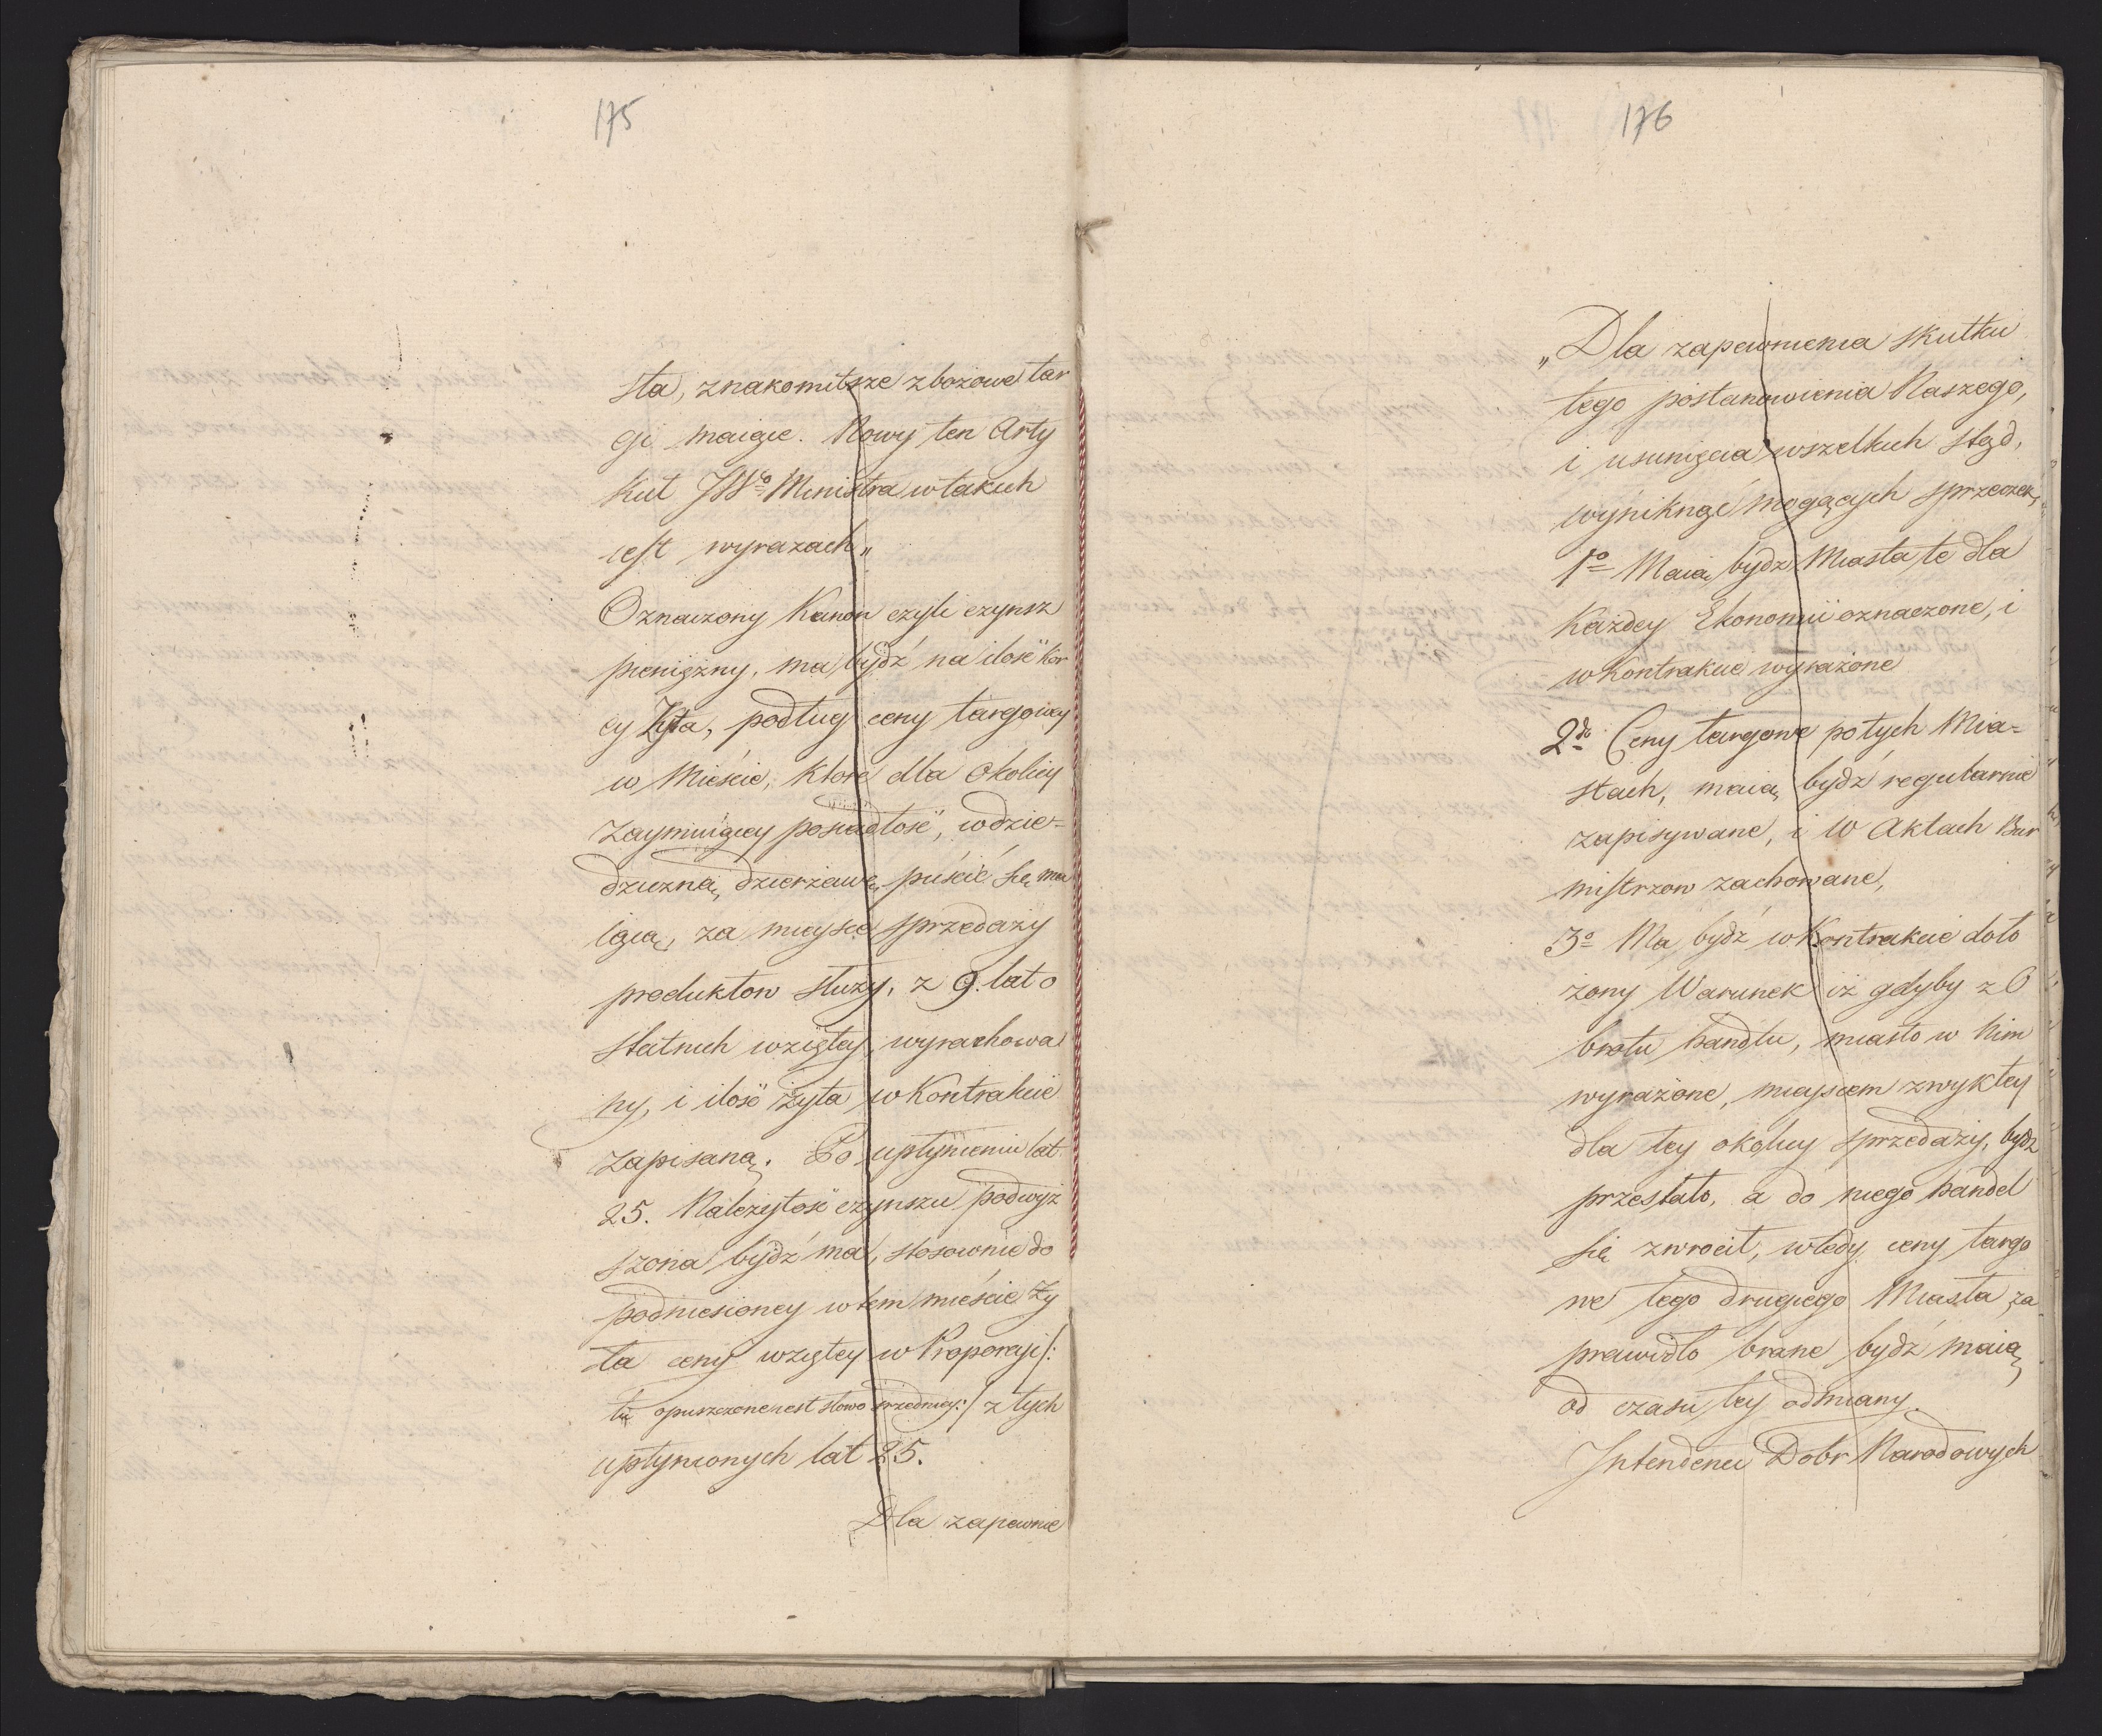 175
sta, znakomitsze zbożowe tar
gi maiące. Nowy ten Arty
kuł JWgo Ministra w takich
iest wyrazach„
Oznaczony Kanon czyli czynsz
pieniężny, ma bydź na ilość kor
cy Żyta, podług ceny targowey
w Mieście, które dla Okolicy
zaymuiącey posiadłość, w dzie=
dziczną dzierżawę puścić się ma
iącą, za mieysce sprzedaży
produktow służy, z 9. lat o
statnich wziętey, wyrachowa
ny, i ilość żyta w Kontrakcie
zapisaną. Po upłynieniu lat
25. Należytość czynszu podwyż
szona bydź ma, stosownie do
podniesioney w tem mieście Ży
ta ceny wziętey w Proporcyi /:
tu opuszczone iest słowo średniey :/ z tych
upłynionych lat 25.
Dla zapewnie
176
„Dla zapewnienia skutku
tego postanowienia Naszego,
i usunięcia wszelkich stąd,
wyniknąć mogących sprzeczek,
1o Maią bydź Miasta te dla
Każdey Ekonomii oznaczone, i
w Kontrakcie wyrażone
2do Ceny targowe po tych Mia=
stach, maią bydź regularnie
zapisywane, i w Aktach Bur
mistrzow zachowane,
3o Ma bydź w Kontrakcie doło
żony Warunek iż gdyby z O
brotu handlu, miasto w Nim
wyrażone, mieyscem zwykłey
dla tey okolicy sprzedaży, bydź
przestało, a do niego handel
się zwrocił, wtedy ceny targo
we tego drugiego Miasta za
prawidło brane bydź maią
od czasu tey odmiany.
Intendenci Dobr Narodowych